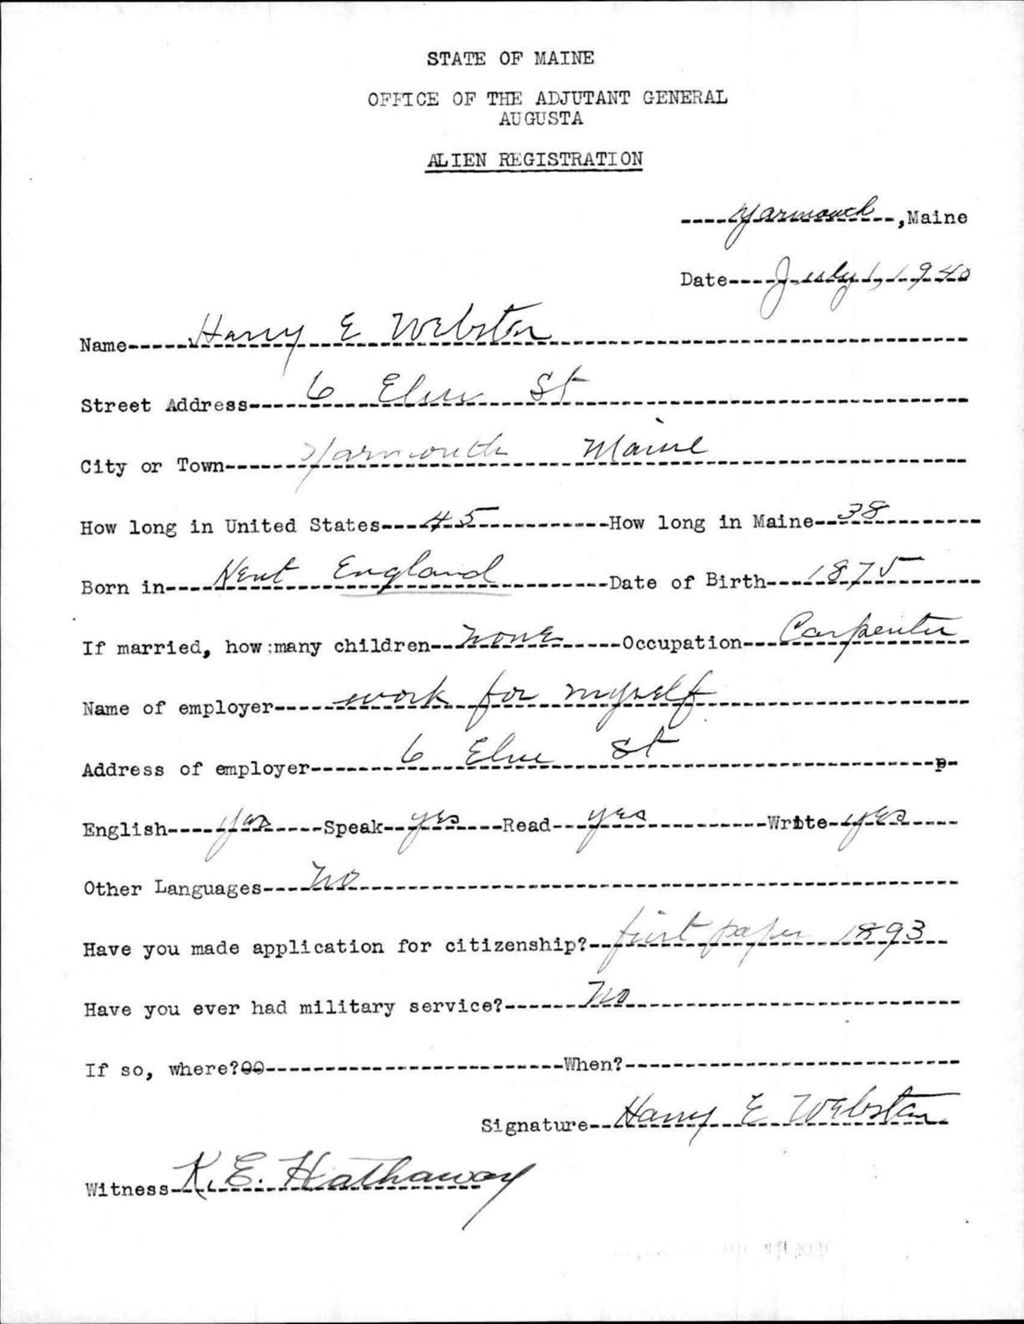 STATE OF MAINE
OFFICE OF THE ADJUTANT GENERAL
AUGUSTA
ALIEN REGISTRATION
----Yarmouth--,Maine
Date----July 1, 1940
Name-----Harry E Webster-----
Street Address-----6 Elm St-----
City or Town-----Yarmouth Maine-----
How long in United States---45-----------How long in Maine--38--------
Born in----Kent England---------Date of Birth---1875------
If married, how:many children--none-----Occupation---Carpenter
Name of employer-----work for myself-----
Address of employer-------6 Elm St-----p-
English----yes----Speak--yes---Read---yes-----------Write-yes----
Other Languages---No-----
Have you made application for citizenship?--first paper 1893--
Have you ever had military service?------No-----
If so, where?OO-----------------------When?-----------------------
Signature--Harry E Webster
Witness-K. E. Hathaway